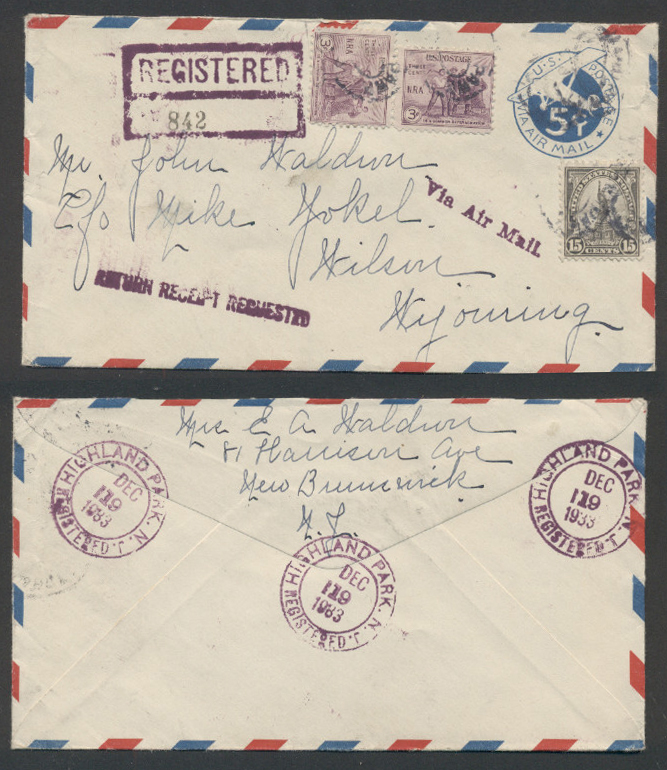 REGISTERED
842
3¢
NRA
U.S. POSTAGE
THREE CENTS
NRA
3¢
U.S. POSTAGE
5¢
VIA AIR MAIL
Mr. John Waldron
c/o Mike Yokel
Wilson
Wyoming.
Via Air Mail
UNITED STATES POSTAGE
15 CENTS 15
RETURN RECEIPT REQUESTED
Mrs E A Waldron
81 Harrison Ave
New Brunswick
N.J.
HIGHLAND PARK, N.J.
DEC
19
1933
REGISTERED
HIGHLAND PARK, N.J.
DEC
19
1933
REGISTERED
HIGHLAND PARK, N.J.
DEC
19
1933
REGISTERED